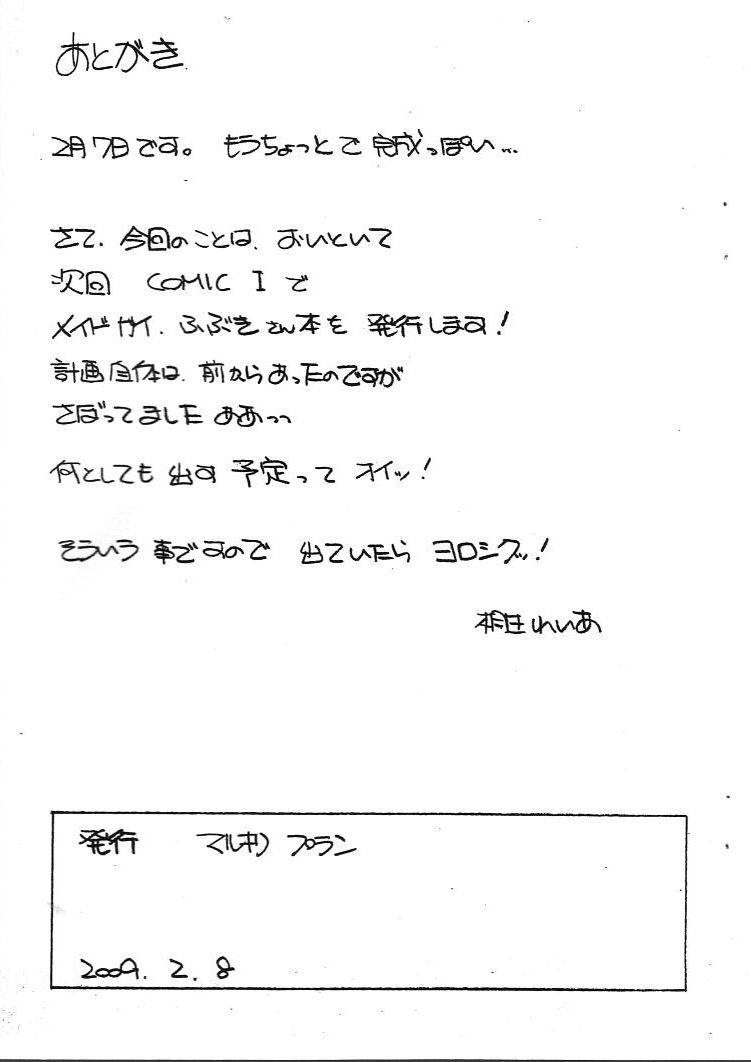 あとがき
2月7日です。 もうちょっとで 完成っぽい…
さて、今回のことは、おいといて
次回 COMIC I で
メイドガイ、ふぶきさん本を 発行します!
計画自体は、前からあったのですが
さぼってました ああっっ
何としても 出す 予定って オイッ!
そういう 事ですので 出ていたら ヨロシグッ!
れいあ
発行 マルキノ プラン
2009. 2. 8